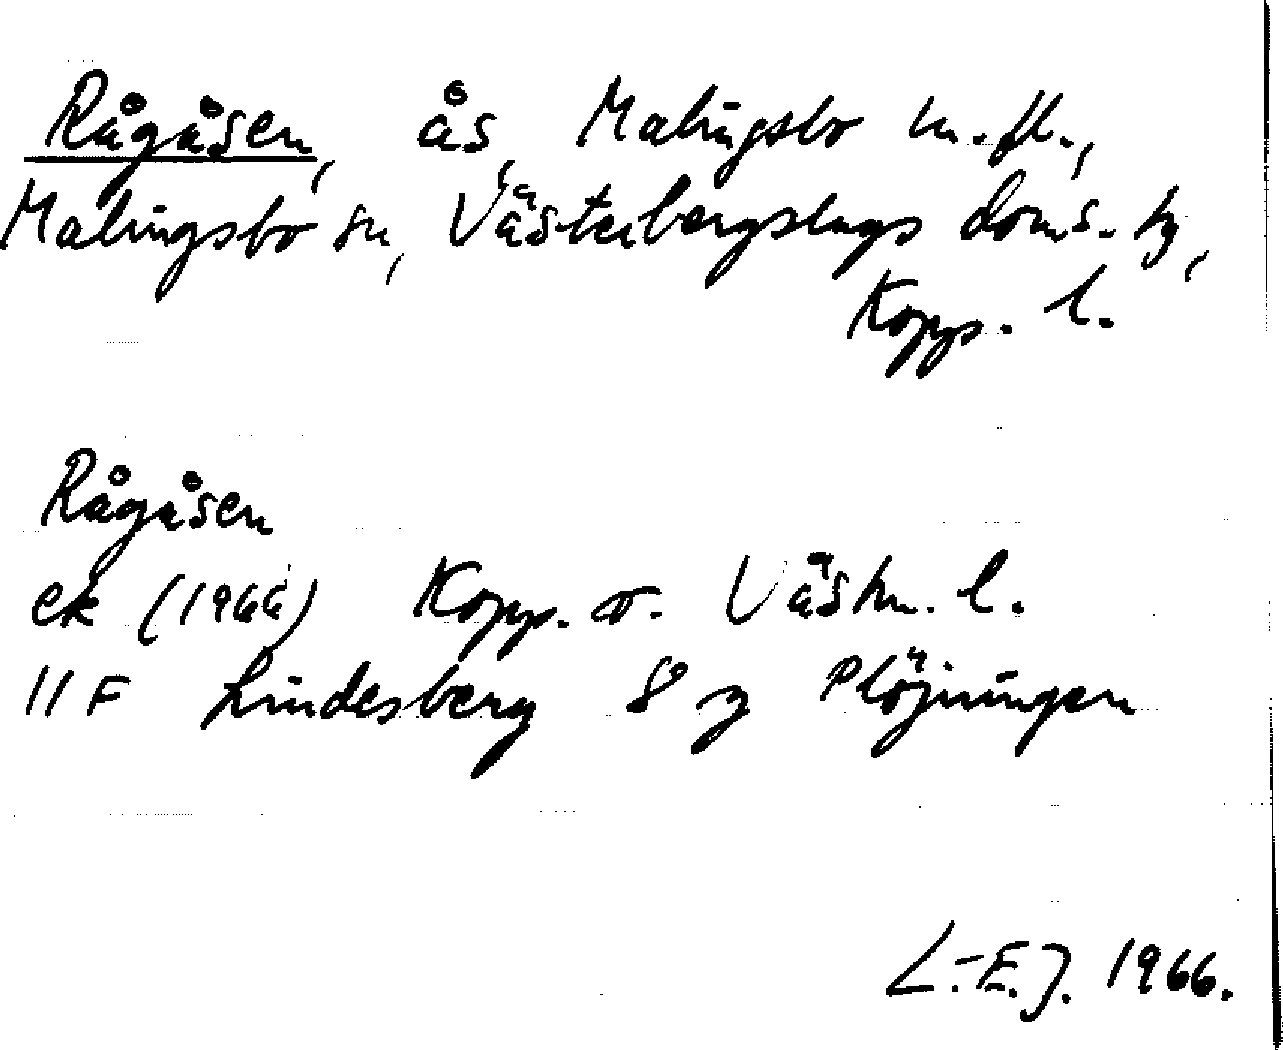 Rågåsen, ås, Malingsbo m.fl.,
Malingsbo sn, Västerbergslags doms. hg,
Kopp. l.
Rågåsen
ek (1966) Kopp. o. Västm. l.
11 F Lindesberg 8 g Plöjningen
L.-E.J. 1966.